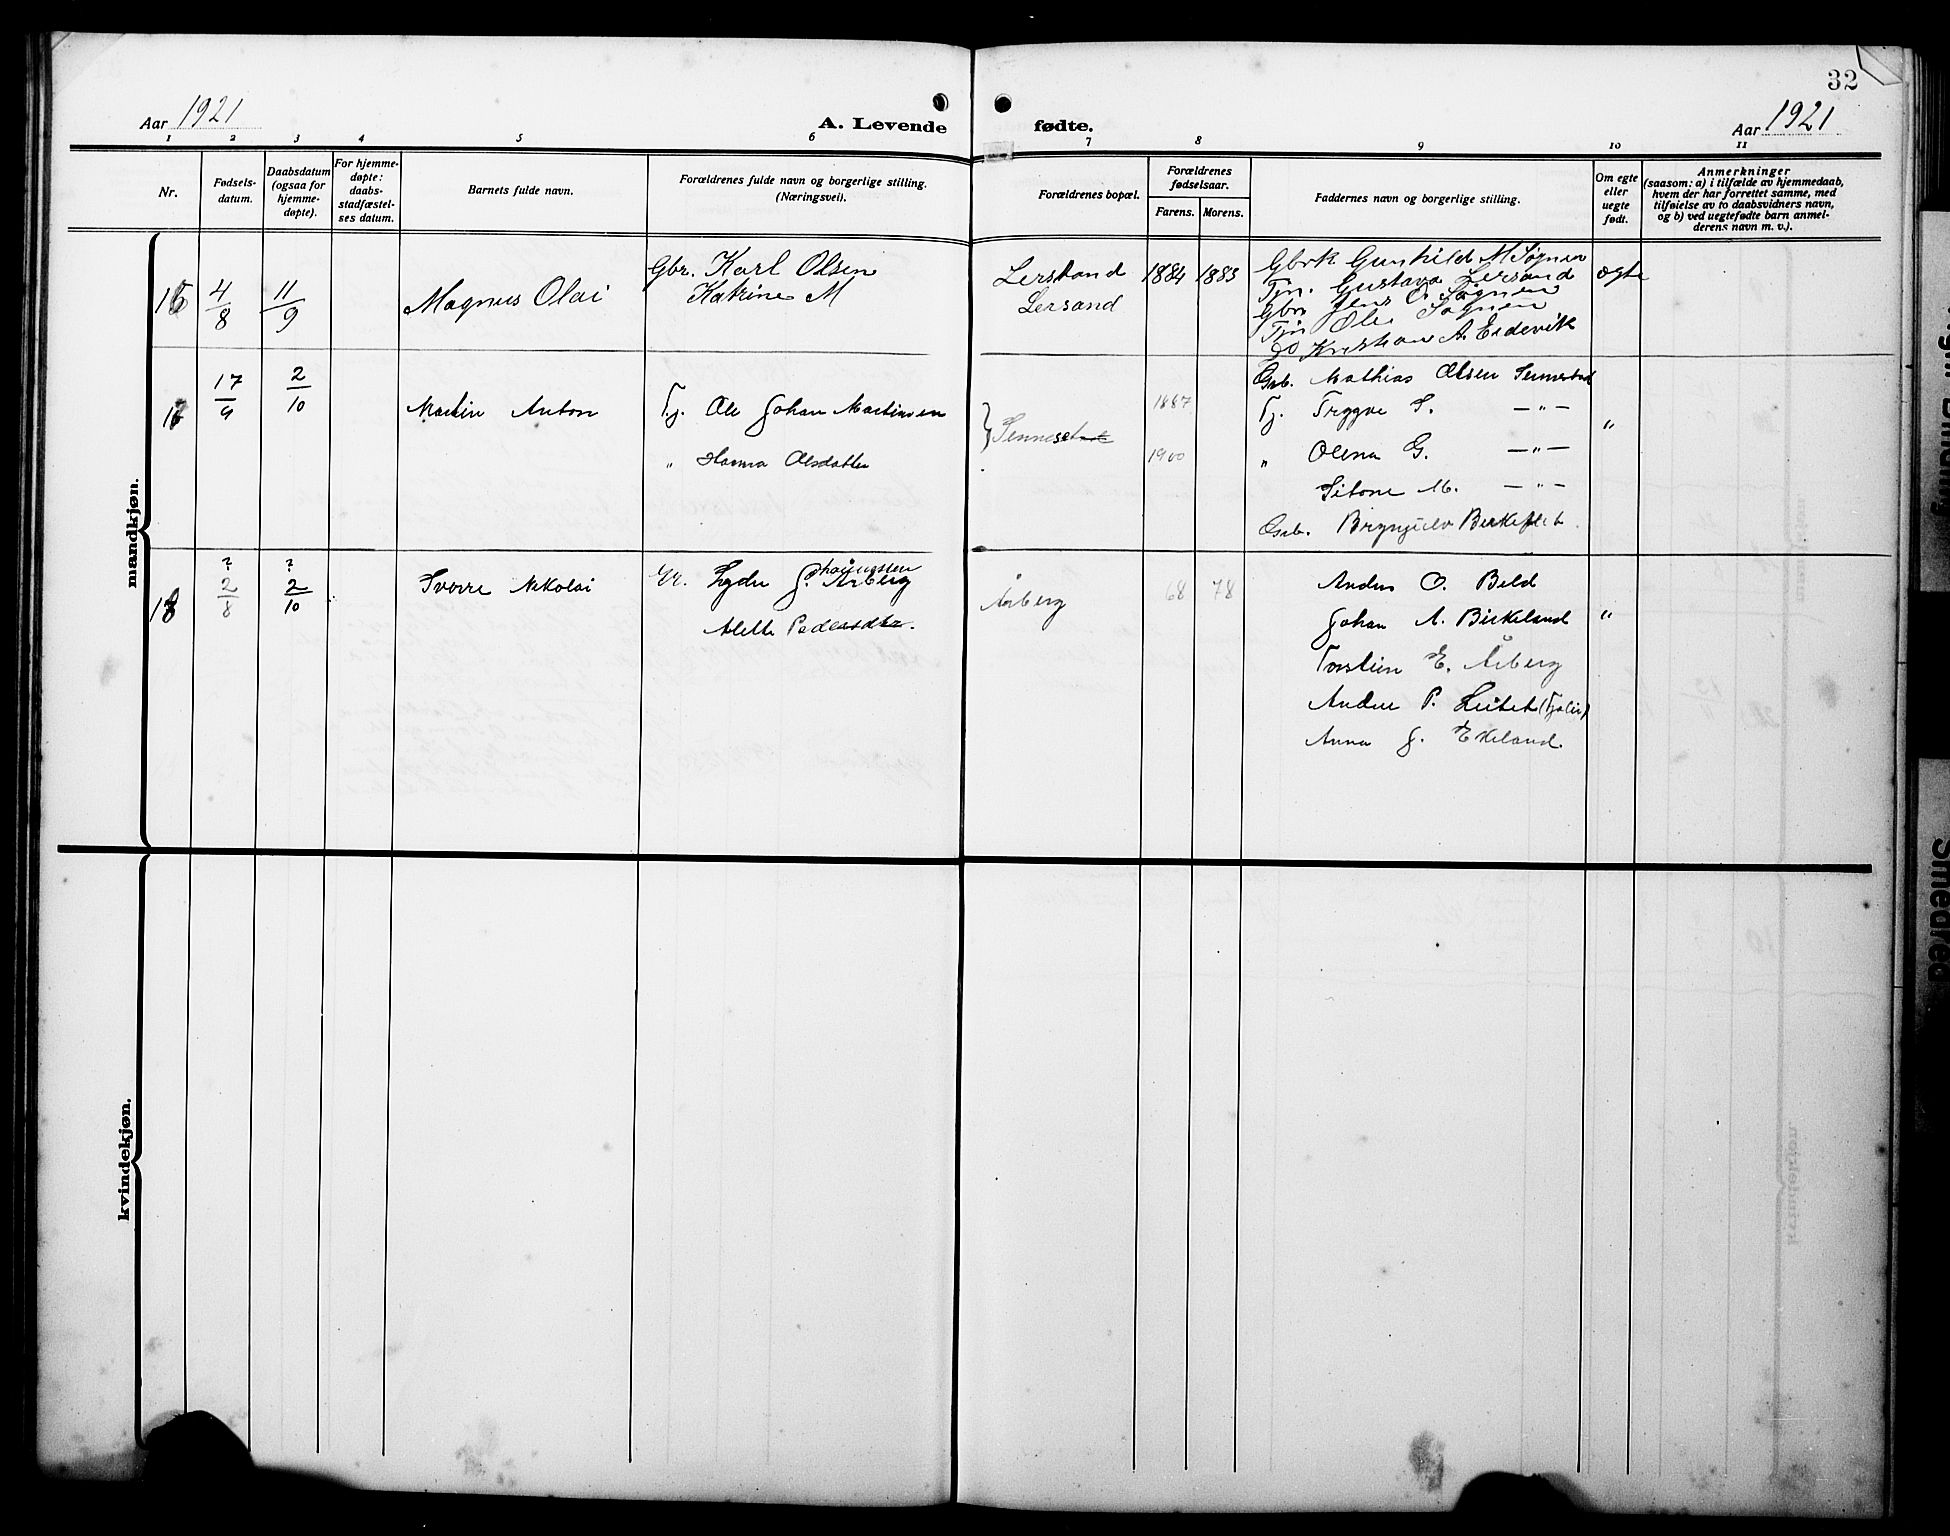 32
Aar 1921
A. Levende
fødte.
Aar 1921
1 2 3 4 5 6 7 8 9 10 11
Nr.
Fødsels-
datum.
Daabsdatum
(ogsaa for
hjemme-
døpte).
For hjemme-
døpte:
daabs-
stadfæstel-
ses datum.
Barnets fulde navn.
Forældrenes fulde navn og borgerlige stilling.
(Næringsvei).
Forældrenes bopæl.
Forældrenes
fødselsaar.
Farens. Morens.
Faddernes navn og borgerlige stilling.
Om egte
eller
uegte
født.
Anmerkninger
(saasom: a) i tilfælde av hjemmedaab,
hvem der har forrettet samme, med
tilføielse av to daabsvidners navn,
og b) ved uegtefødte barn anmel-
derens navn m. v.).
mandkjøn.
4/8 11/9
Magnus Olai
Gbr. Karl Olsen
Katrine M
Lerstand
Lersand
1884 1883
Gbrk Gunhild M Søgnen
Tjn. Gustava Lersand
Gbr Jens O. Søgnen
Tjn Ole Søgnen
Do Kristian A. Eidevik
egte
17/9 2/10
Martin Anton
Tj. Ole Johan Martinsen
" Hanna Olsdatter
Sennestad
1887
1900
Gsb. Mathias Olsen Sennestad
Tj. Tryggve S. — " —
" Olena G. — " —
M. — " —
Gsb. Brynjulv Birkeflet
"
? 2/8 ? 2/10
Sverre Nikolai
Gr. J. Årberg
Alette Pedersdtr.
Årberg
68 78
Anders O. Beld
Johan A. Birkeland
Torstein E. Årberg
P. Leitet
Anna J. Ekeland.
"
kvindekjøn.